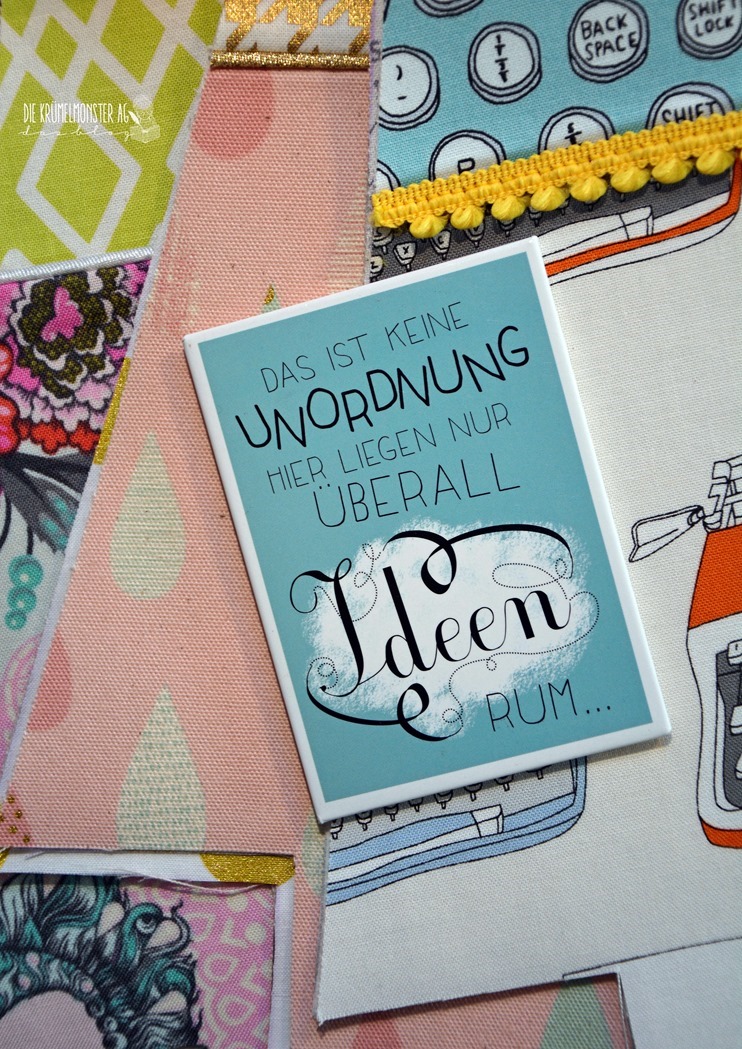 DIE KRÜMELMONSTER AG
das blog
BACK
SPACE
SHIFT
LOCK
SHIFT
DAS IST KEINE
UNORDNUNG
HIER LIEGEN NUR
ÜBERALL
Ideen
RUM...